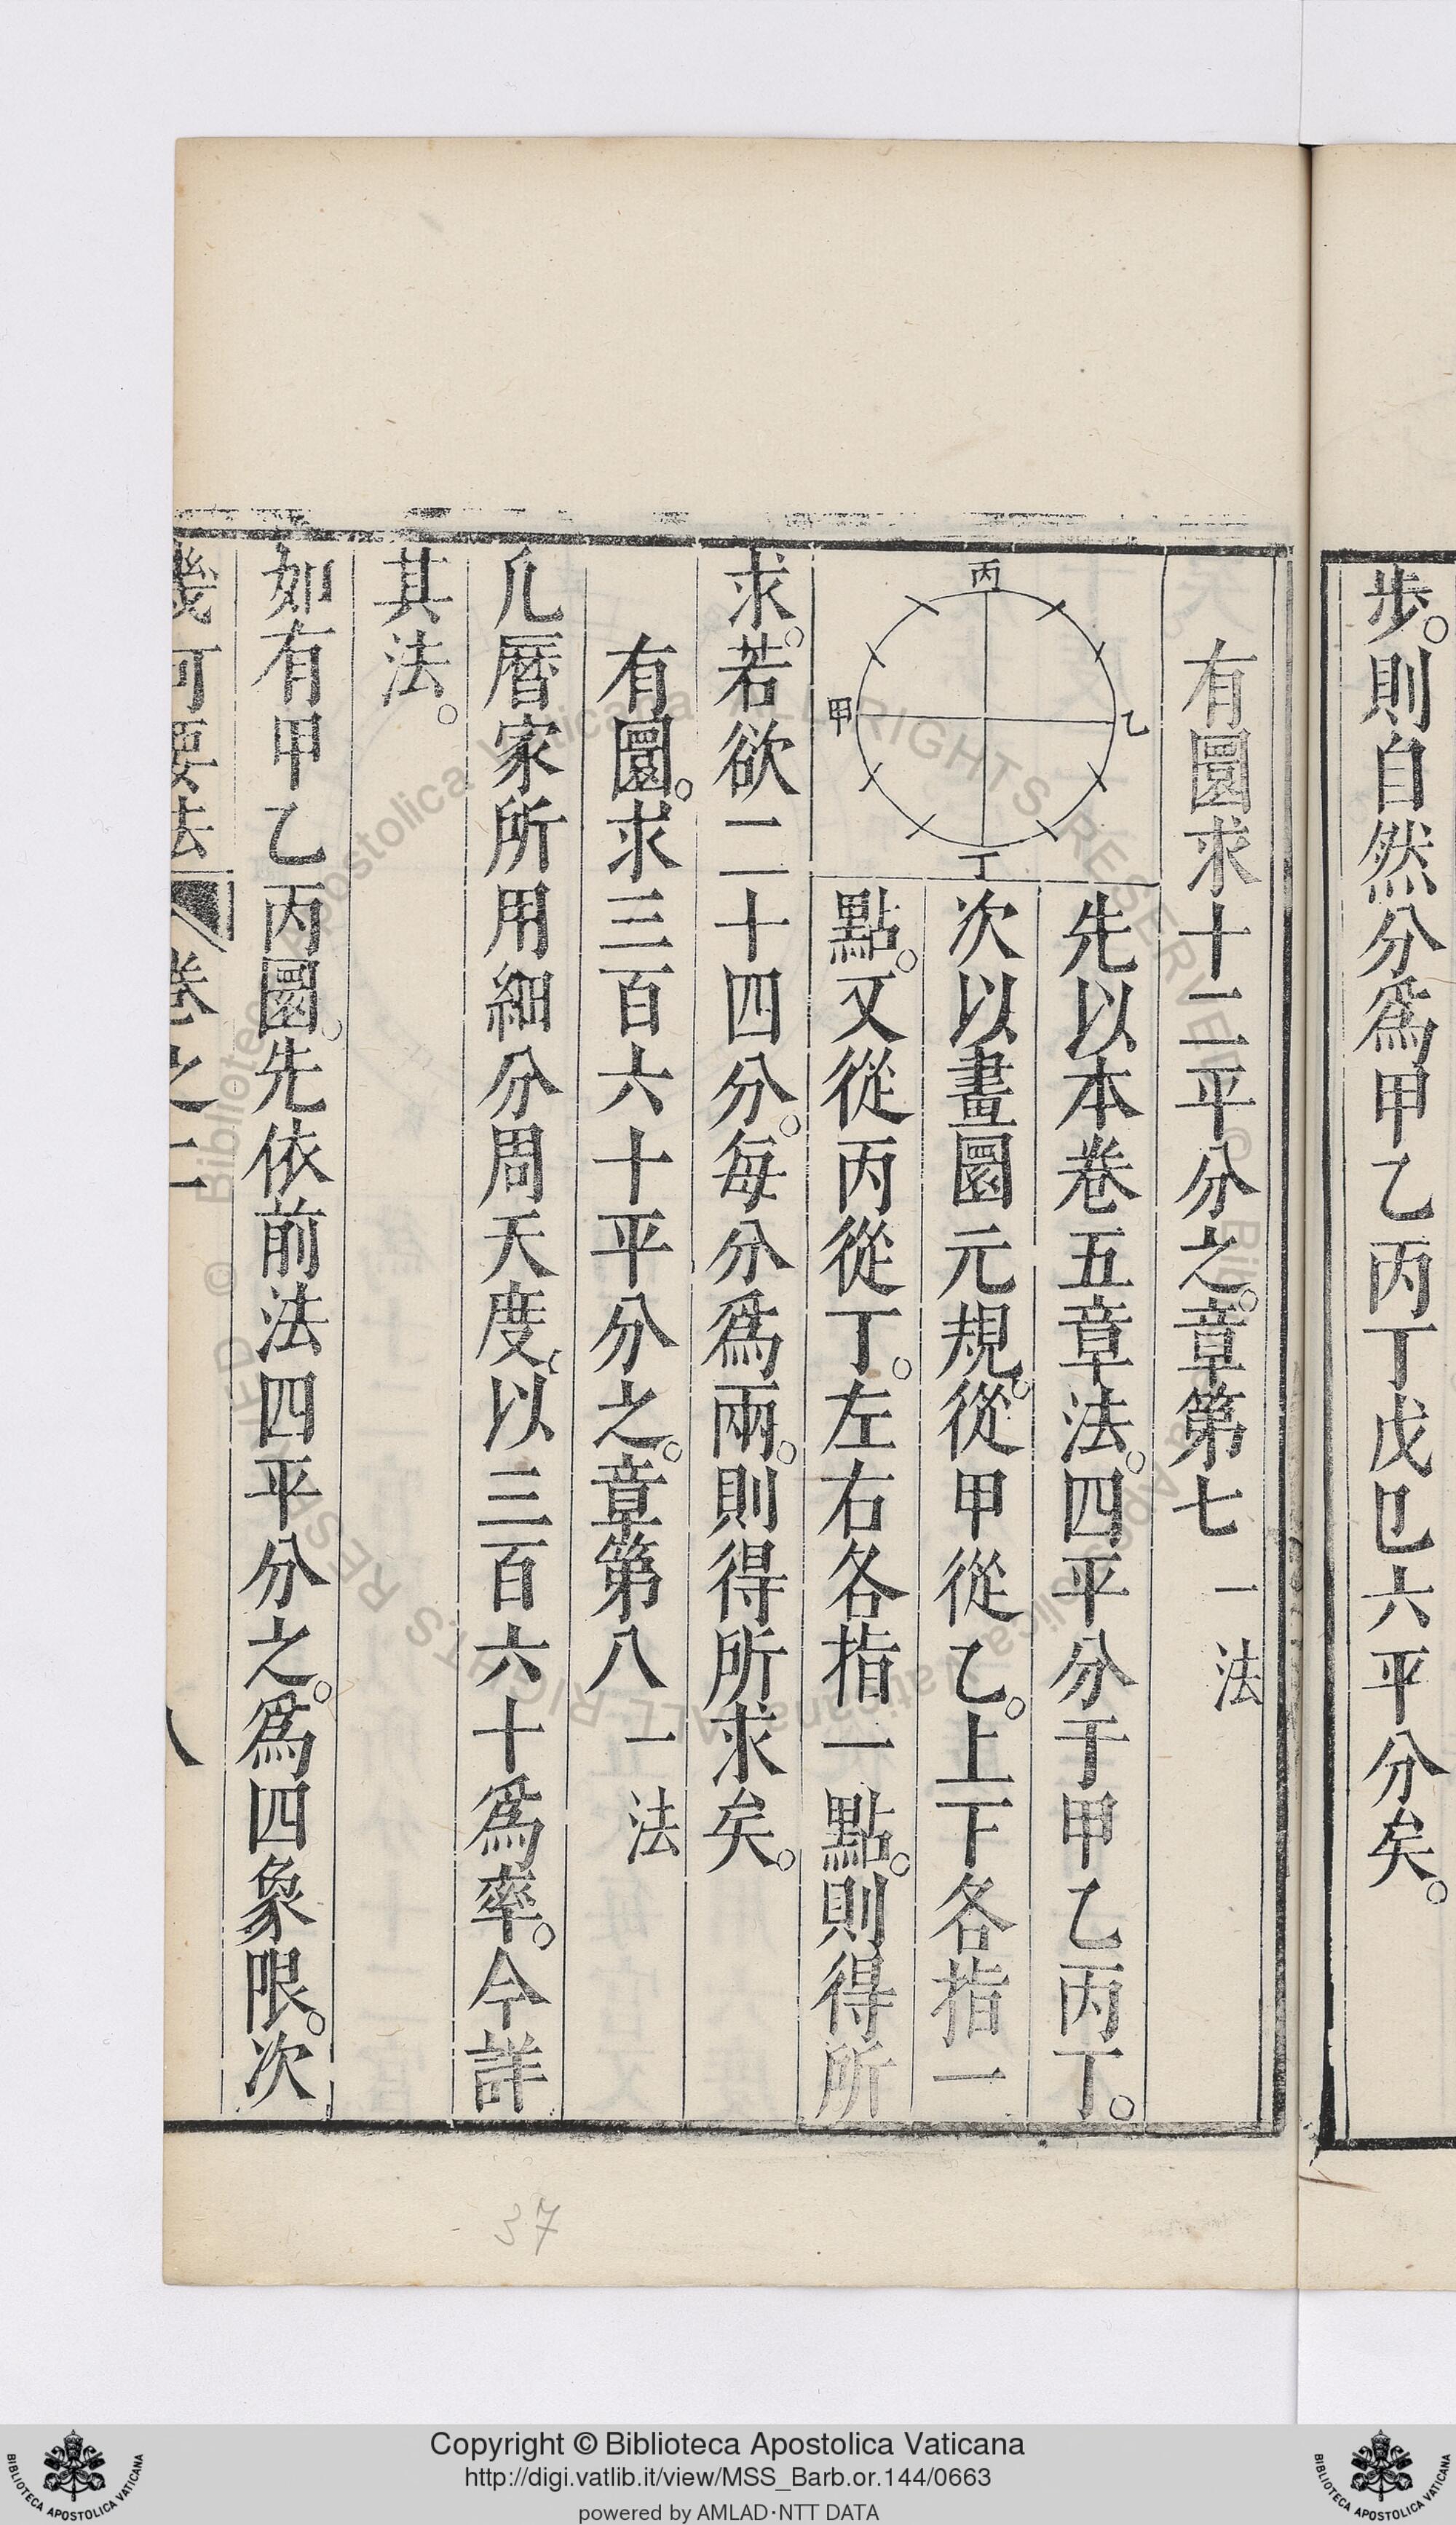 步。則自然分爲甲乙丙丁戊巳六平分矣。
有圜求十二平分之。章第七 一法
丙
乙
甲
丁
先以本卷五章法。四平分于甲乙丙丁。
次以畫圜元規。從甲從乙。上下各指一
點。又從丙從丁。左右各指一點。則得所
求。若欲二十四分。每分爲兩。則得所求矣。
有圜。求三百六十平分之。章第八 一法
凢曆家所用細分周天度。以三百六十爲率。今詳
其法。
如有甲乙丙圜。先依前法四平分之。爲四象限。次
幾何要法 卷之二
37
Copyright © Biblioteca Apostolica Vaticana
http://digi.vatlib.it/view/MSS_Barb.or.144/0663
powered by AMLAD·NTT DATA
BIBLIOTECA APOSTOLICA VATICANA
BIBLIOTECA APOSTOLICA VATICANA